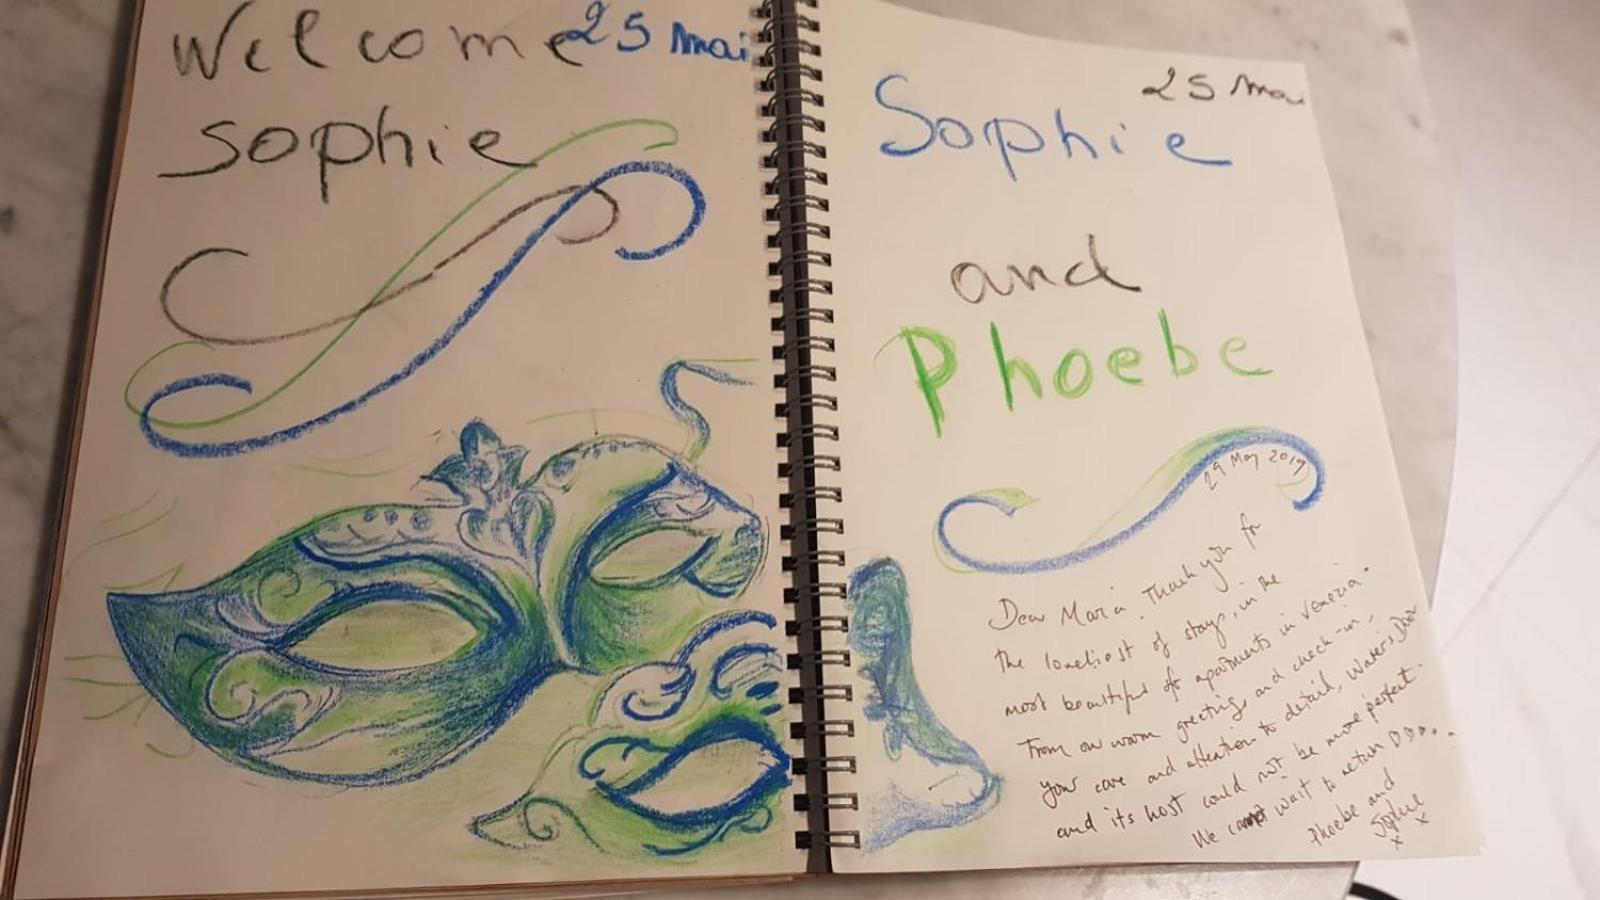 Welcome 25 Mai
Sophie
25 Mai
Sophie
and
Phoebe
29 May 2019
Dear Maria. Thank you for
the loveliest of stays, in the
most beautiful of apartments in Venezia.
From our warm greetings and check-in -
your care and attention to detail, Water's Door
and its host could not be more perfect.
We cannot wait to return
Phoebe and
Sophie
x x